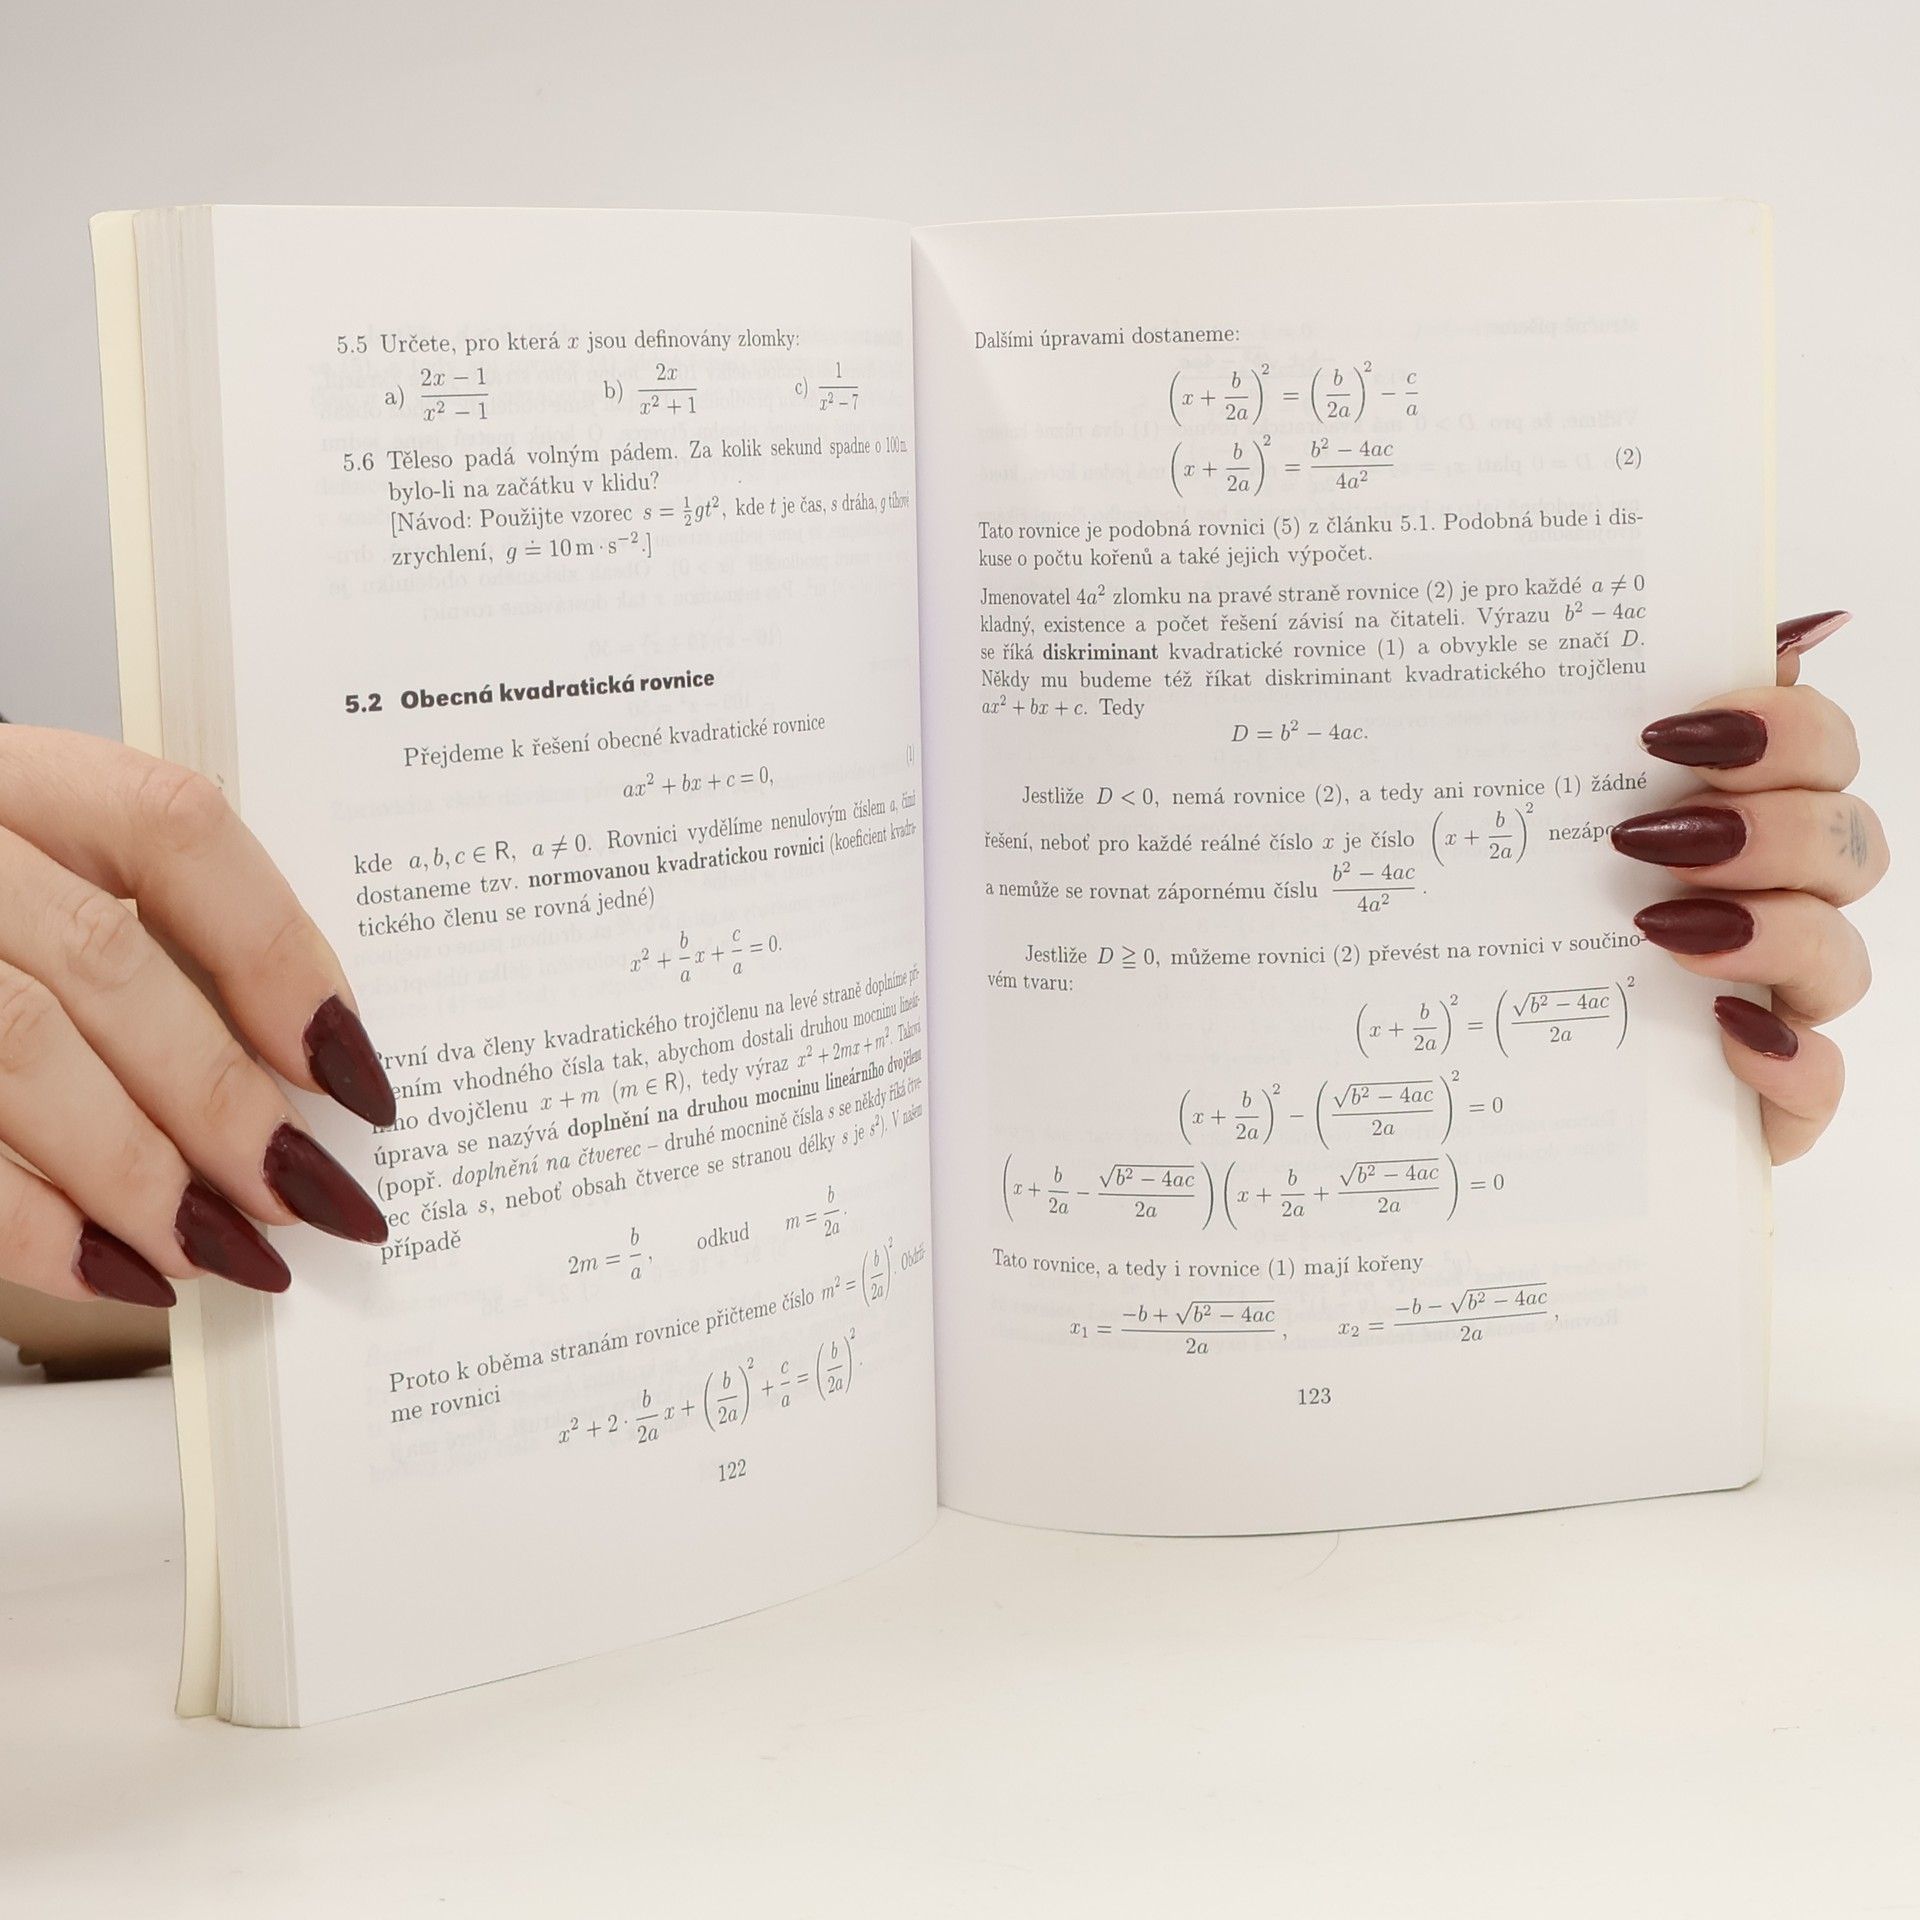 5.5 Určete, pro která x jsou definovány zlomky:
a) \frac{2x - 1}{x^2 - 1} b) \frac{2x}{x^2 + 1} c) \frac{1}{x^2 - 7}
5.6 Těleso padá volným pádem. Za kolik sekund spadne o 100 m
bylo-li na začátku v klidu?
[Návod: Použijte vzorec s = \frac{1}{2}gt^2, kde t je čas, s dráha, g tíhové
zrychlení, g ≐ 10 m · s^{-2}.]
5.2 Obecná kvadratická rovnice
Přejdeme k řešení obecné kvadratické rovnice
ax^2 + bx + c = 0, (1)
kde a, b, c ∈ R, a ≠ 0. Rovnici vydělíme nenulovým číslem a, čímž
dostaneme tzv. normovanou kvadratickou rovnici (koeficient kvadra-
tického členu se rovná jedné)
x^2 + \frac{b}{a}x + \frac{c}{a} = 0.
První dva členy kvadratického trojčlenu na levé straně doplníme při-
ením vhodného čísla tak, abychom dostali druhou mocninu lineár-
ho dvojčlenu x + m (m ∈ R), tedy výraz x^2 + 2mx + m^2. Taková
úprava se nazývá doplnění na druhou mocninu lineárního dvojčlenu
(popř. doplnění na čtverec – druhé mocnině čísla s se někdy říká čtve-
ec čísla s, neboť obsah čtverce se stranou délky s je s^2). V našem
případě
2m = \frac{b}{a}, odkud m = \frac{b}{2a}.
Proto k oběma stranám rovnice přičteme číslo m^2 = \left(\frac{b}{2a}\right)^2. Obdrží-
me rovnici
x^2 + 2 · \frac{b}{2a}x + \left(\frac{b}{2a}\right)^2 + \frac{c}{a} = \left(\frac{b}{2a}\right)^2.
122
Dalšími úpravami dostaneme:
\left(x + \frac{b}{2a}\right)^2 = \left(\frac{b}{2a}\right)^2 - \frac{c}{a}
\left(x + \frac{b}{2a}\right)^2 = \frac{b^2 - 4ac}{4a^2} (2)
Tato rovnice je podobná rovnici (5) z článku 5.1. Podobná bude i dis-
kuse o počtu kořenů a také jejich výpočet.
Jmenovatel 4a^2 zlomku na pravé straně rovnice (2) je pro každé a ≠ 0
kladný, existence a počet řešení závisí na čitateli. Výrazu b^2 - 4ac
se říká diskriminant kvadratické rovnice (1) a obvykle se značí D.
Někdy mu budeme též říkat diskriminant kvadratického trojčlenu
ax^2 + bx + c. Tedy
D = b^2 - 4ac.
Jestliže D < 0, nemá rovnice (2), a tedy ani rovnice (1) žádné
řešení, neboť pro každé reálné číslo x je číslo \left(x + \frac{b}{2a}\right)^2 nezápo
a nemůže se rovnat zápornému číslu \frac{b^2 - 4ac}{4a^2}.
Jestliže D ≧ 0, můžeme rovnici (2) převést na rovnici v součino-
vém tvaru:
\left(x + \frac{b}{2a}\right)^2 = \left(\frac{\sqrt{b^2 - 4ac}}{2a}\right)^2
\left(x + \frac{b}{2a}\right)^2 - \left(\frac{\sqrt{b^2 - 4ac}}{2a}\right)^2 = 0
\left(x + \frac{b}{2a} - \frac{\sqrt{b^2 - 4ac}}{2a}\right)\left(x + \frac{b}{2a} + \frac{\sqrt{b^2 - 4ac}}{2a}\right) = 0
Tato rovnice, a tedy i rovnice (1) mají kořeny
x_1 = \frac{-b + \sqrt{b^2 - 4ac}}{2a}, x_2 = \frac{-b - \sqrt{b^2 - 4ac}}{2a},
123